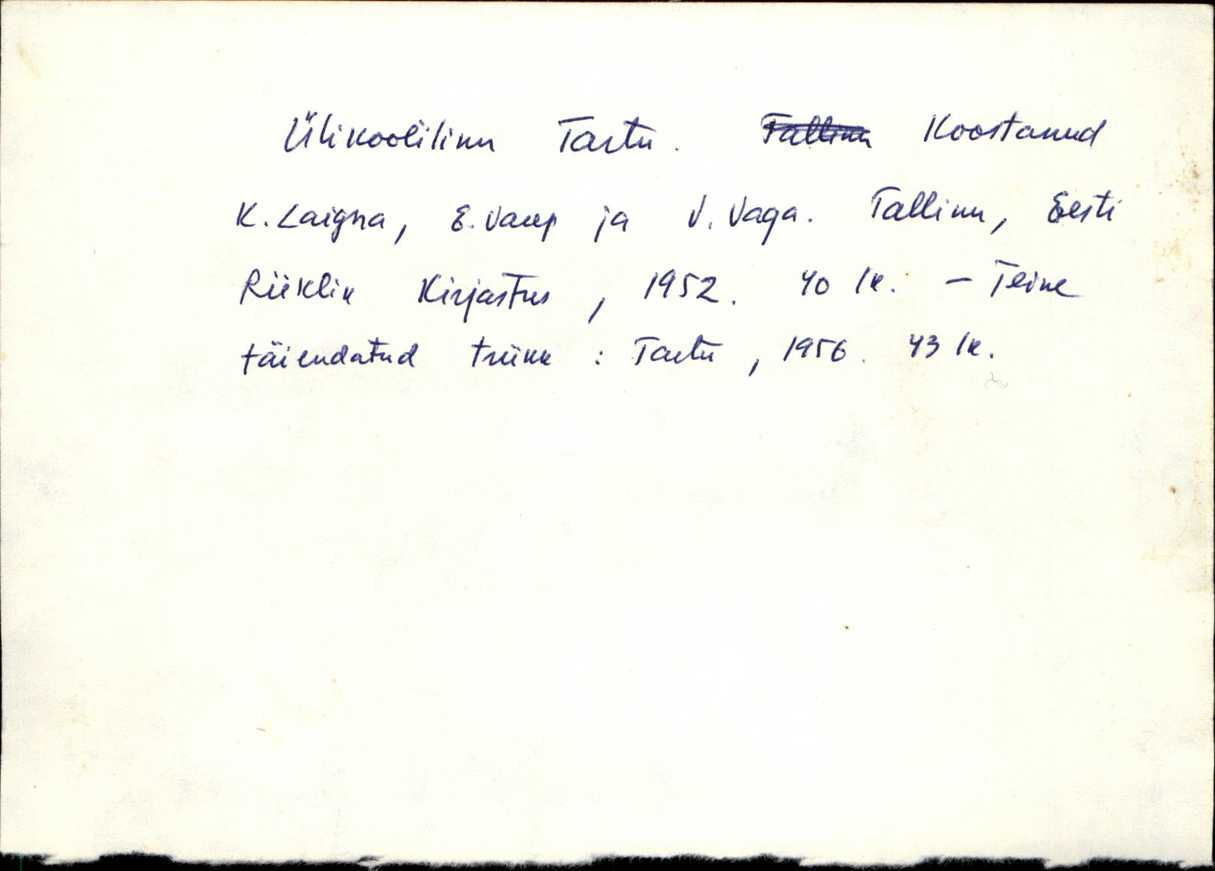 Ülikoolilinn Tartu. Koostanud
K. Laigna, E. Vaup ja V. Vaga. Tallinn, Eesti
Riiklik Kirjastus, 1952. 40 lk. – Teine
täiendatud trükk : Tartu, 1956. 43 lk.